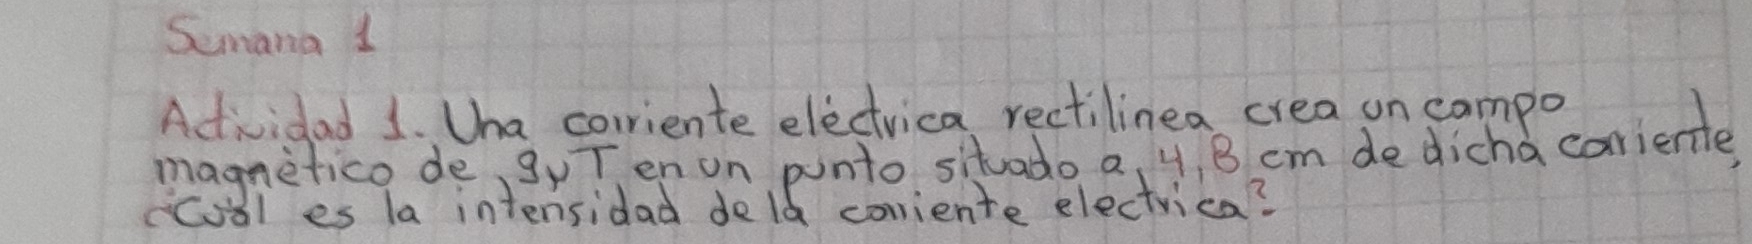 Semana 1
Actividad 1. Una corriente eléctrica rectilinea crea un campo
magnético de 9γT en un punto situado a 4,8 cm de dicha corriente,
¿Cuál es la intensidad de la corriente electrica?